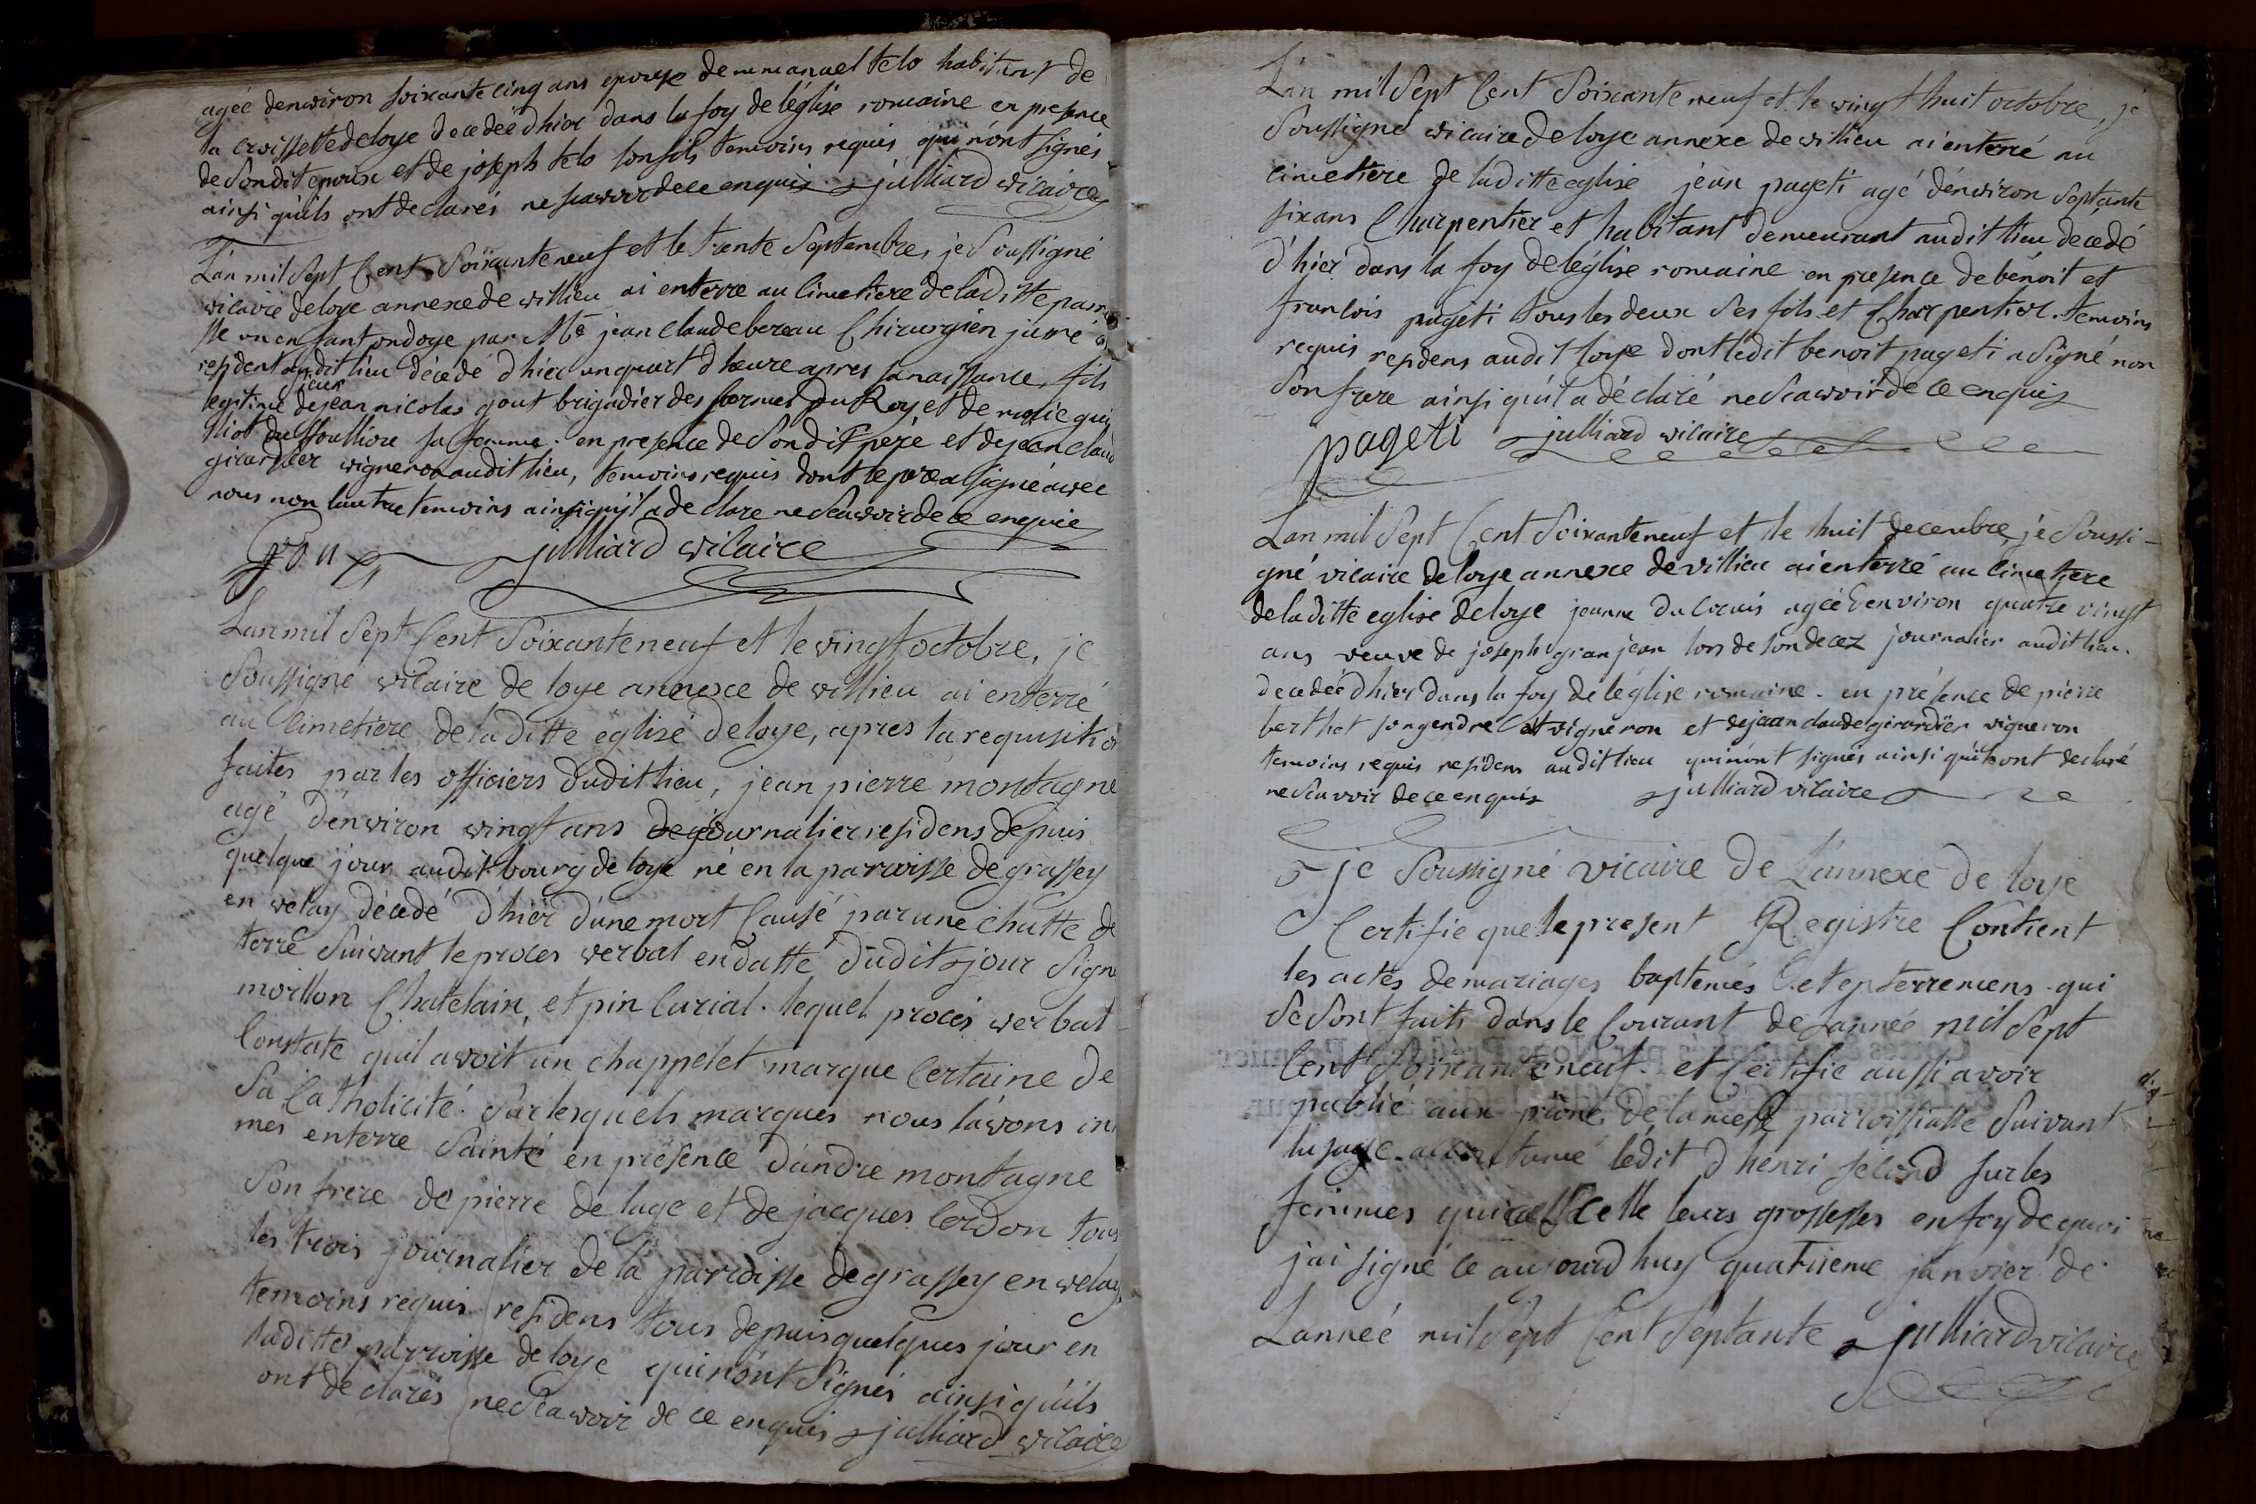 agéé denwiron soixante cinq ans epouse demmanuel telo habitant de
la croissette de loye decedéé d'hier dans la foy de léglise romaine en presence
de sondit epoux et de joseph telo son fils temoins requis qui n'ont signés
ainsi qu'ils ont declarés ne scawoir de ce enquis julliard wicaire
L'an mil sept cent soixante neuf et le trente septembre, je soussigné
wicaire de loye annexe de willieu ai enterre au cimetiere de la ditte parr
un enfant ondoye par Me jean claude bereau chirurgien juré
resident audit lieu décédé d'hier un quart d'heure apres sa naissance, fils
legitime de sieur jean nicolas gout brigadier des fermes du Roy et de
sa femme. en presence de son dit pere et de jean claud
girardier wigneron audit lieu, temoins requis dont le pere a signé awec
nous non lautre temoins ainsi qu'il a declare ne scawoir de ce enquis
julliard wicaire
L'an mil sept cent soixante neuf et le vingt octobre, je
soussigne wicaire de loye annexe de willieu ai enterré
au cimetiere de la ditte église de loye, apres la requisitio
faites par les officiers dudit lieu, jean pierre montagne
agé d'énwiron wingt ans journalier residens depuis
quelque jour audit bourg de loye né en la paroisse de grassey
en welay décedé d'hier d'une mort causé par une chutte de
terre suiwant le procés werbal en datte dudit jour signé
moillon chatelain, et pin curial. lequel procés werbal
constate qu'il awoit un chappelet marque certaine de
sa catholicité. sur lesquels marques nous l'awons inu
més enterre sainte en présence d'andre montagne
son frere de pierre deluge et de jacques cerdon tous
les trois journalier de la paroisse de grassey en welay,
temoins requis residens tous depuis quelques jour en
laditte parroisse de loye qui n'ont signés ainsi qu'ils
ont declarés ne scawoir de ce enquis julliard wicaire
L'an mil sept cent soixante neuf et le wingt huit octobre, je
soussigné wicaire de loye annexe de willieu ai enterré au
cimetiere de laditte eglise jean pageti agé dénwiron septante
six ans charpentier et habitant demeurant audit lieu décédé
d'hier dans la foy de léglise romaine en presence de bénoit et
francois pageti tous les deux ses fils et charpentier. temoins
requis residens audit loye dont ledit benoit pageti a signé non
son frere ainsi qu'il a déclaré ne scawoir de ce enquis
pageti julliard wicaire
L'an mil sept cent soixante neuf et le huit decembre, je soussi-
gné vicaire de loye annexe de villieu ai enterré au cimetiere
de la ditte eglise de loye jeanne agéé d'environ quatre vingt
ans veuve de joseph granjean lors de son decez journalier audit lieu.
decedéé d'hier dans la foy de léglise romaine. en présence de pierre
berthet son gendre et vigneron et de jean claude girardier vigneron
temoins requis residens audit lieu qui n'ont signés ainsi qu'ils ont declaré
ne scavoir de ce enquis julliard vicaire
je soussigné vicaire de L'annexe de loye
certifie que le present Registre contient
les actes de mariages baptemes et enterremens qui
se sont faits dans le courant de L'année mil sept
cent soixante neuf. et certifie aussi avoir
publié aux prone de la messe parroissialle suivant
l'usage accoutumé l'édit d'henri second sur les
femmes qui leurs grossesses en foy de quoi
j'ai signé ce aujourd'huy quatrieme janvier de
L'année mil sept cent septante julliard vicaire